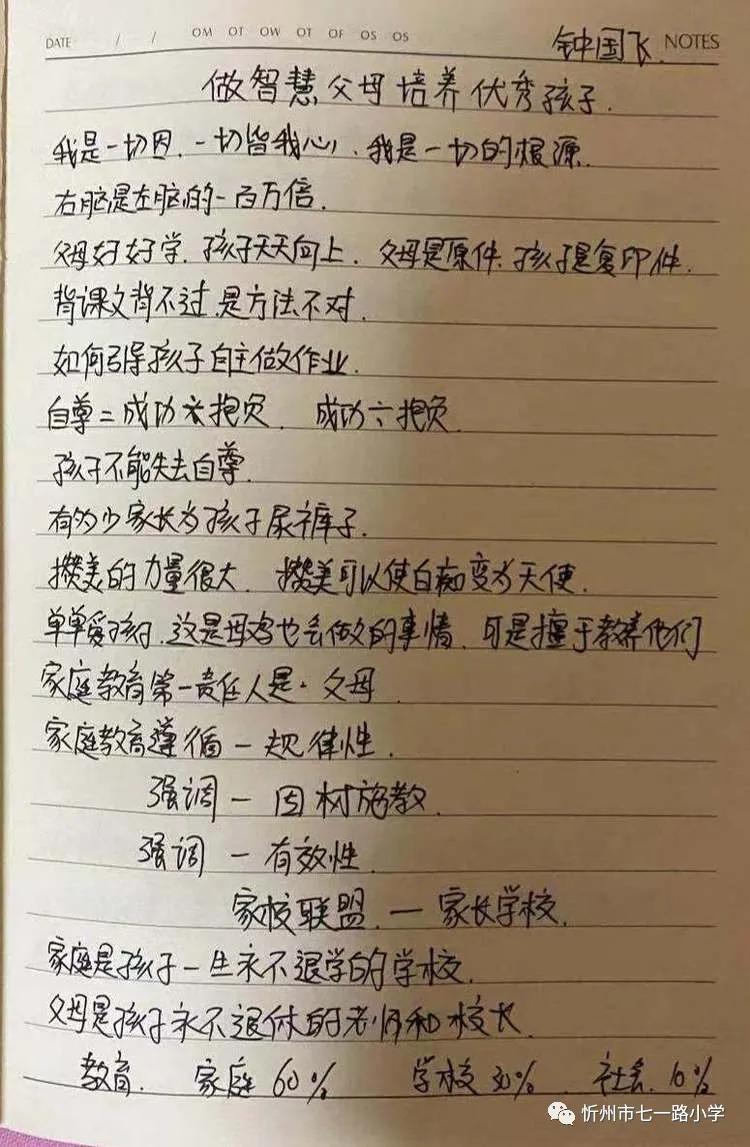 DATE / / OM OT OW OT OF OS OS 钟国飞 NOTES
做智慧父母培养优秀孩子.
我是一切因. 一切皆我心、我是一切的根源.
右脑是左脑的一百万倍.
父母好好学. 孩子天天向上. 父母是原件. 孩子是复印件.
背课文背不过 是方法不对.
如何引导孩子自主做作业.
自尊=成功 抱负. 成功÷抱负.
孩子不能失去自尊.
有多少家长为孩子尿裤子.
攒美的力量很大. 攒美可以使白痴变为天使.
单单爱孩子. 这是母鸡也会做的事情. 可是擅于教养他们
家庭教育第一责任人是·父母.
家庭教育遵循一规律性.
强调一因材施教.
强调一有效性.
家校联盟.一家长学校.
家庭是孩子一生永不退学的学校.
父母是孩子永不退休的老师和校长.
教育. 家庭60% 学校30% 社会.10%
忻州市七一路小学